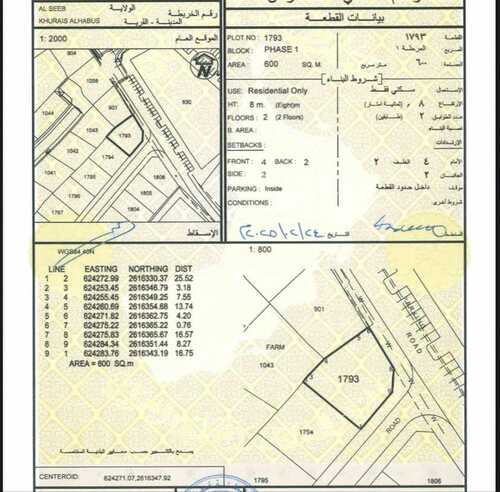 AL SEEB
KHURAIS ALHABUS
الولاية
المدينة - القرية
رقم الخريطة
1: 2000
الموقع العام
N
1044
901
930
1043
1793
1042
1794
1041
1795
1806
1796
1797
1804
الإسقاط
بيانات القطعة
PLOT NO: 1793 ١٧٩٣ القطعة
BLOCK: PHASE 1 المرحلة ١ المربع
AREA : 600 SQ. M ٦٠٠ متر مربع المساحة
شروط البناء
USE : Residential Only سكني فقط الإستعمال
HT: 8 m. (Eight)m ٨ م (ثمانية أمتار) الإرتفاع
FLOORS : 2 (2 Floors) ٢ (طابقين) عدد الطوابق
B. AREA : نسبة البناء
SETBACKS: الإرتدادات
FRONT : 4 BACK : 2 ٢ الخلف ٤ الأمام
SIDE : 2 ٢ الجانبان
PARKING : Inside داخل حدود القطعة موقف
CONDITIONS : شروط أخرى
WGS84 40N
1 : 800
LINE EASTING NORTHING DIST
1 2 624272.99 2616330.37 25.52
2 3 624253.45 2616346.79 3.18
3 4 624255.45 2616349.25 7.55
4 5 624260.69 2616354.68 13.74
5 6 624271.82 2616362.75 4.20
6 7 624275.22 2616365.22 0.76
7 8 624275.83 2616365.67 16.57
8 9 624284.34 2616351.44 8.27
9 1 624283.76 2616343.19 16.75
AREA = 600 SQ.m
901
FARM
1043
1793
1254
1794
PARKING
ROAD
ROAD
W
CENTEROID: 624271.07,2616347.92
1795
1806